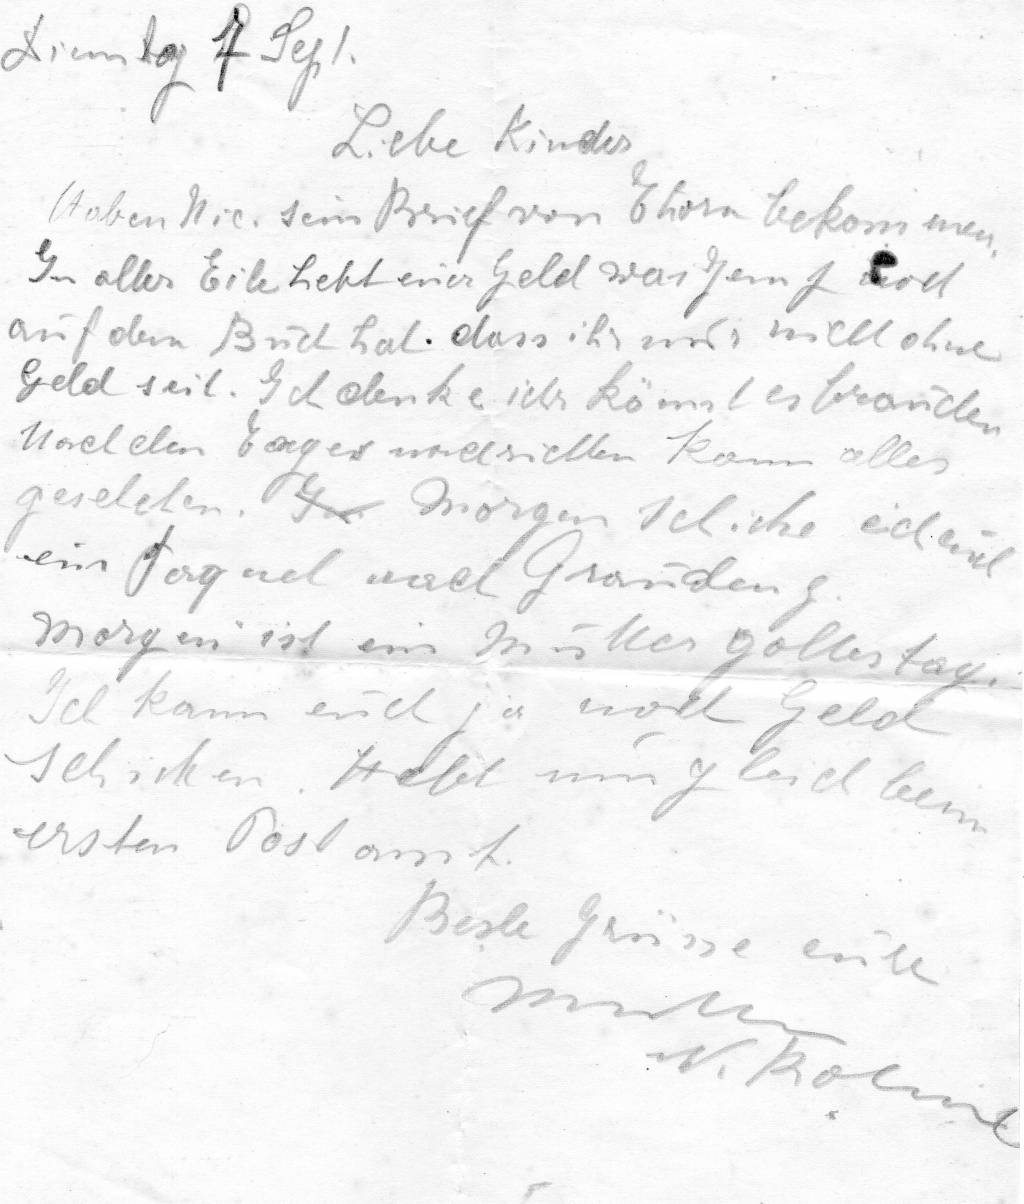 Dienstag 7 Sept.
Liebe Kinder
Haben Nic. sein Brief von Thorn bekommen.
In aller Eile hebt euer Geld was Jemp noch
auf dem Buch hat. dass ihr mir nicht ohne
Geld seit. Ich denke ihr könnt es brauchen
Nach den Tages nachrichten kann alles
geschehen. Morgen schicke ich auch
ein Paquet nach Graudenz.
Morgen ist ein Muttergottestag.
Ich kann euch ja noch Geld
schicken. Hebt nun gleich beim
ersten Postamt.
Beste Grüsse eure
Mutter
N.